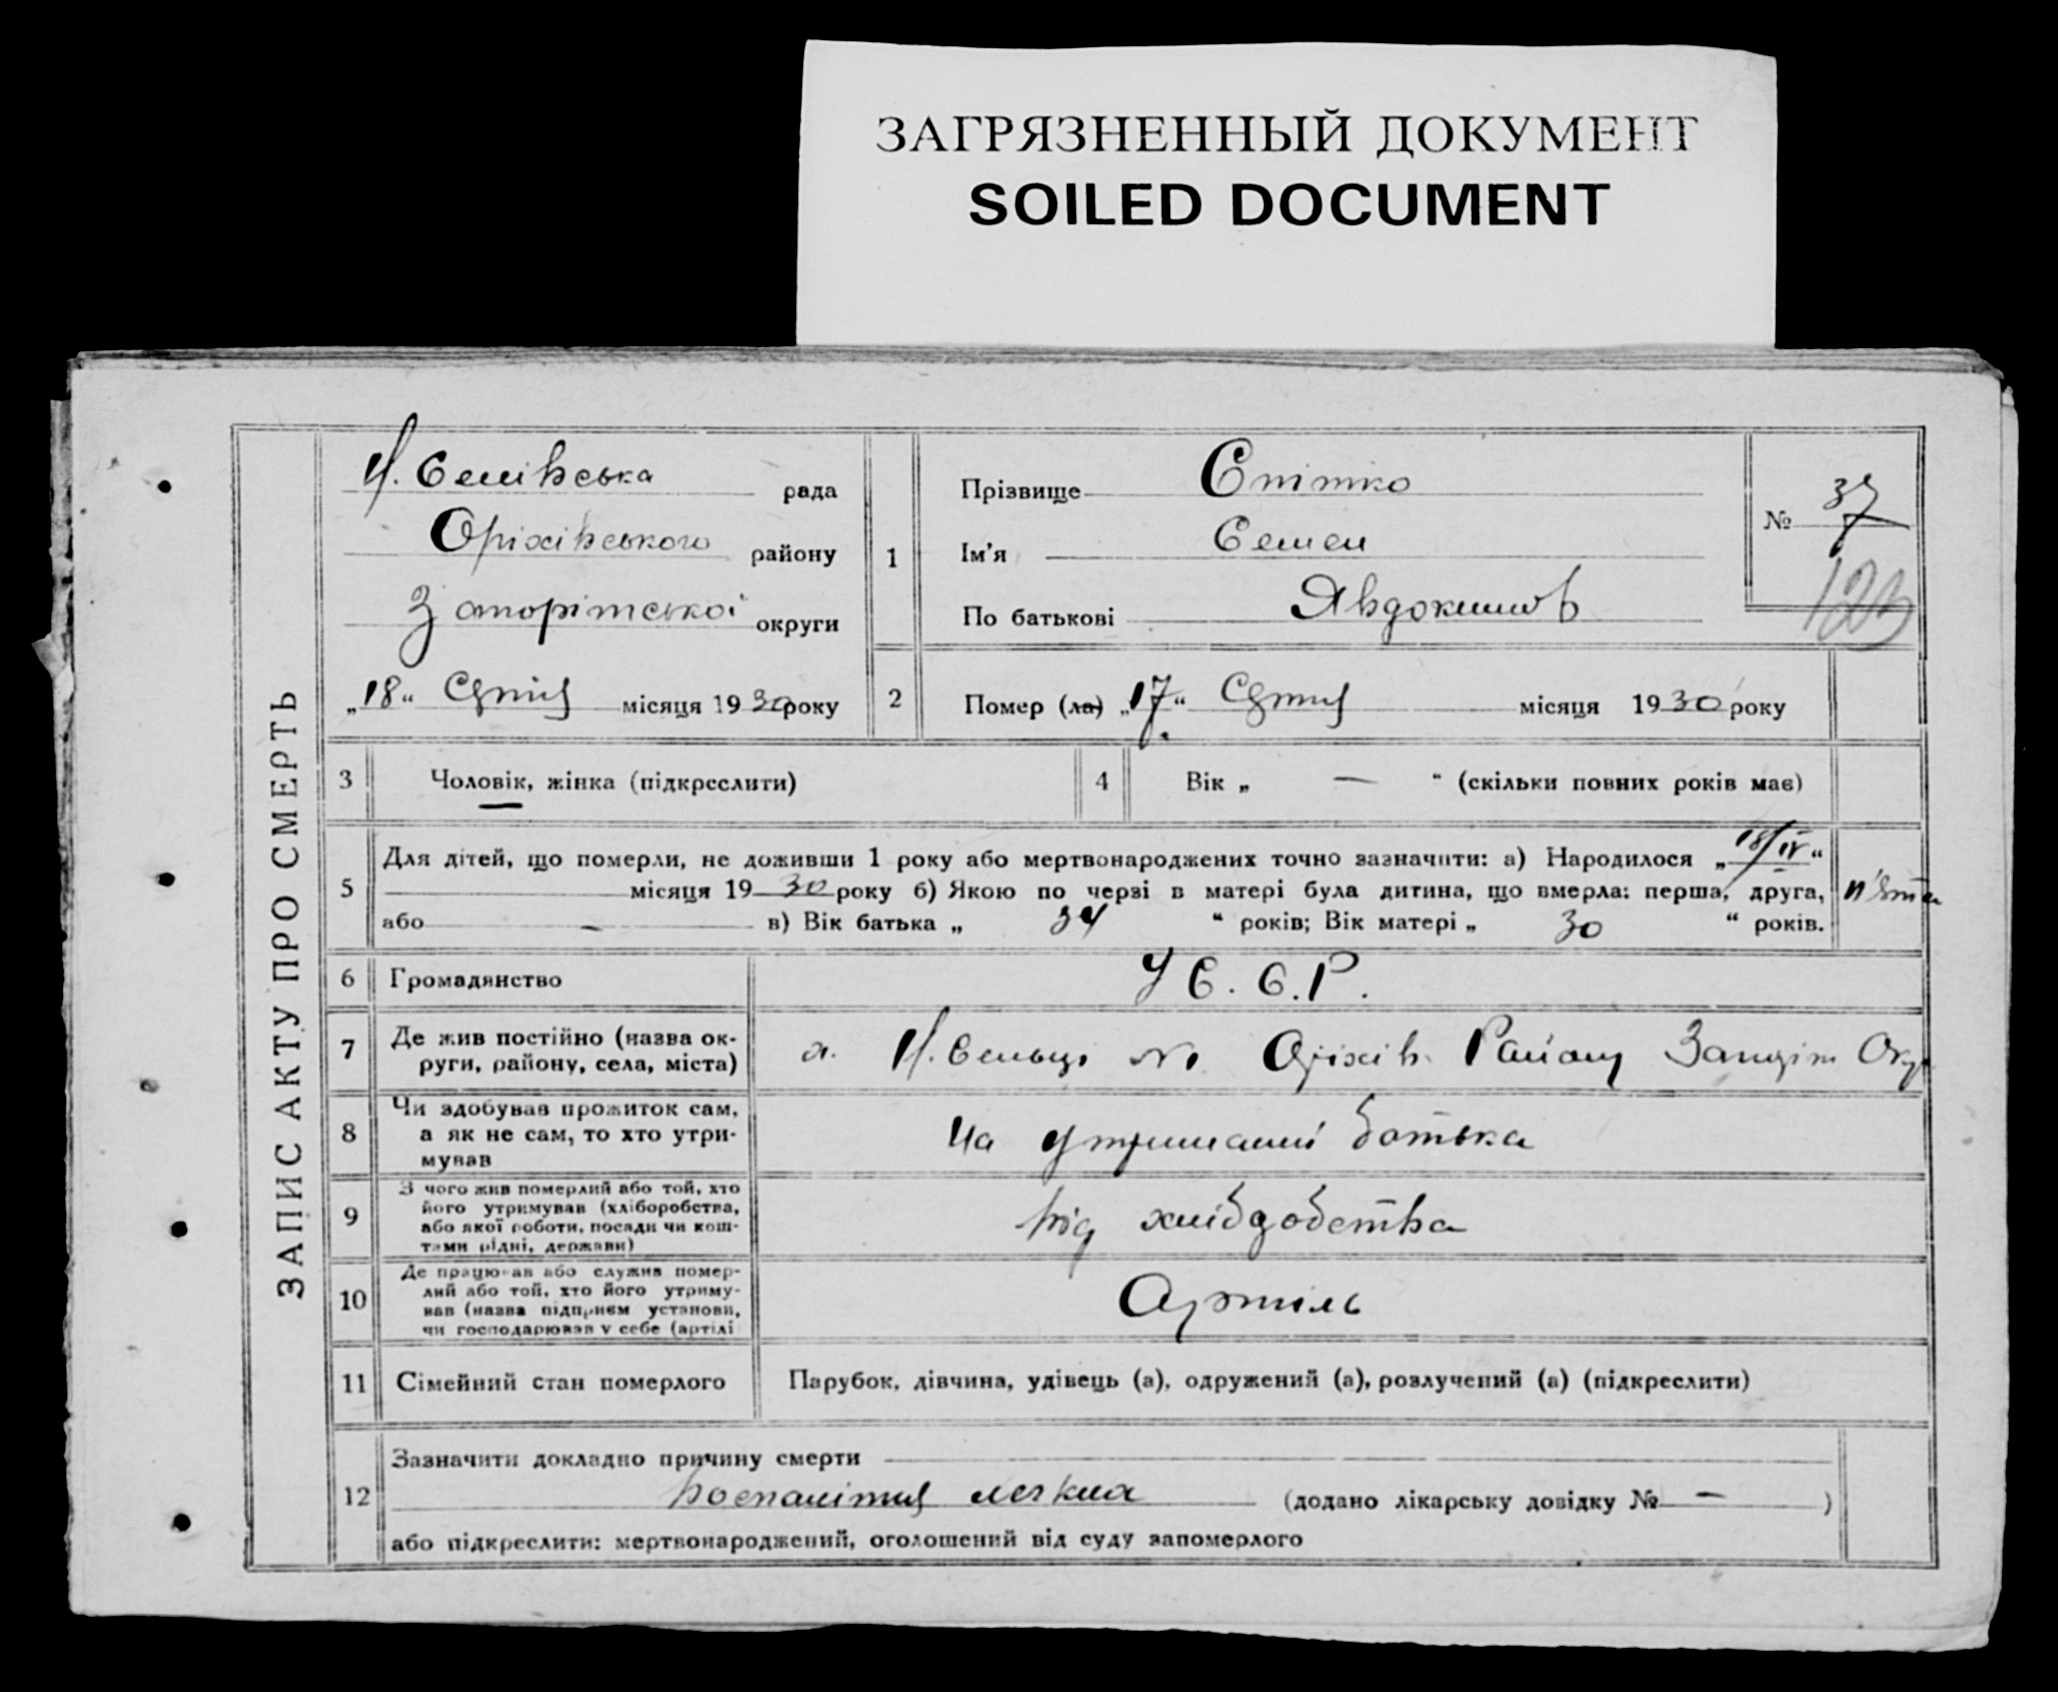 ЗАГРЯЗНЕННЫЙ ДОКУМЕНТ
SOILED DOCUMENT
ЗАПИС АКТУ ПРО СМЕРТЬ
рада
Оріхівського району
округи
„18“ місяця 1930 року
1
Прізвище
Ім'я Семен
По батькові Явдокимов
№ 37
123
2
Помер (ла) „17“ місяця 1930 року
3
Чоловік, жінка (підкреслити)
4
Вік „ — “ (скільки повних років має)
5
Для дітей, що померли, не доживши 1 року або мертвонароджених точно зазначити: а) Народилося „18/IV“
місяця 1930 року б) Якою по черзі в матері була дитина, що вмерла: перша, друга,
або – в) Вік батька „ 34 “ років; Вік матері „ 30 “ років.
п'ята
6
Громадянство
У С. С. Р.
7
Де жив постійно (назва ок-
руги, району, села, міста)
Оріхів. Району
8
Чи здобував прожиток сам,
а як не сам, то хто утри-
мував
На утриманні батька
9
З чого жив померлий або той, хто
його утримував (хліборобства,
або якої роботи, посади чи кош-
тами рідні, держави)
від
10
Де працював або служив помер-
лий або той, хто його утриму-
вав (назва підприєм установи,
чи господарював у себе (артілі
Артіль
11
Сімейний стан померлого
Парубок, дівчина, удівець (а), одружений (а), розлучений (а) (підкреслити)
12
Зазначити докладно причину смерти
(додано лікарську довідку № — )
або підкреслити: мертвонароджений, оголошений від суду запомерлого